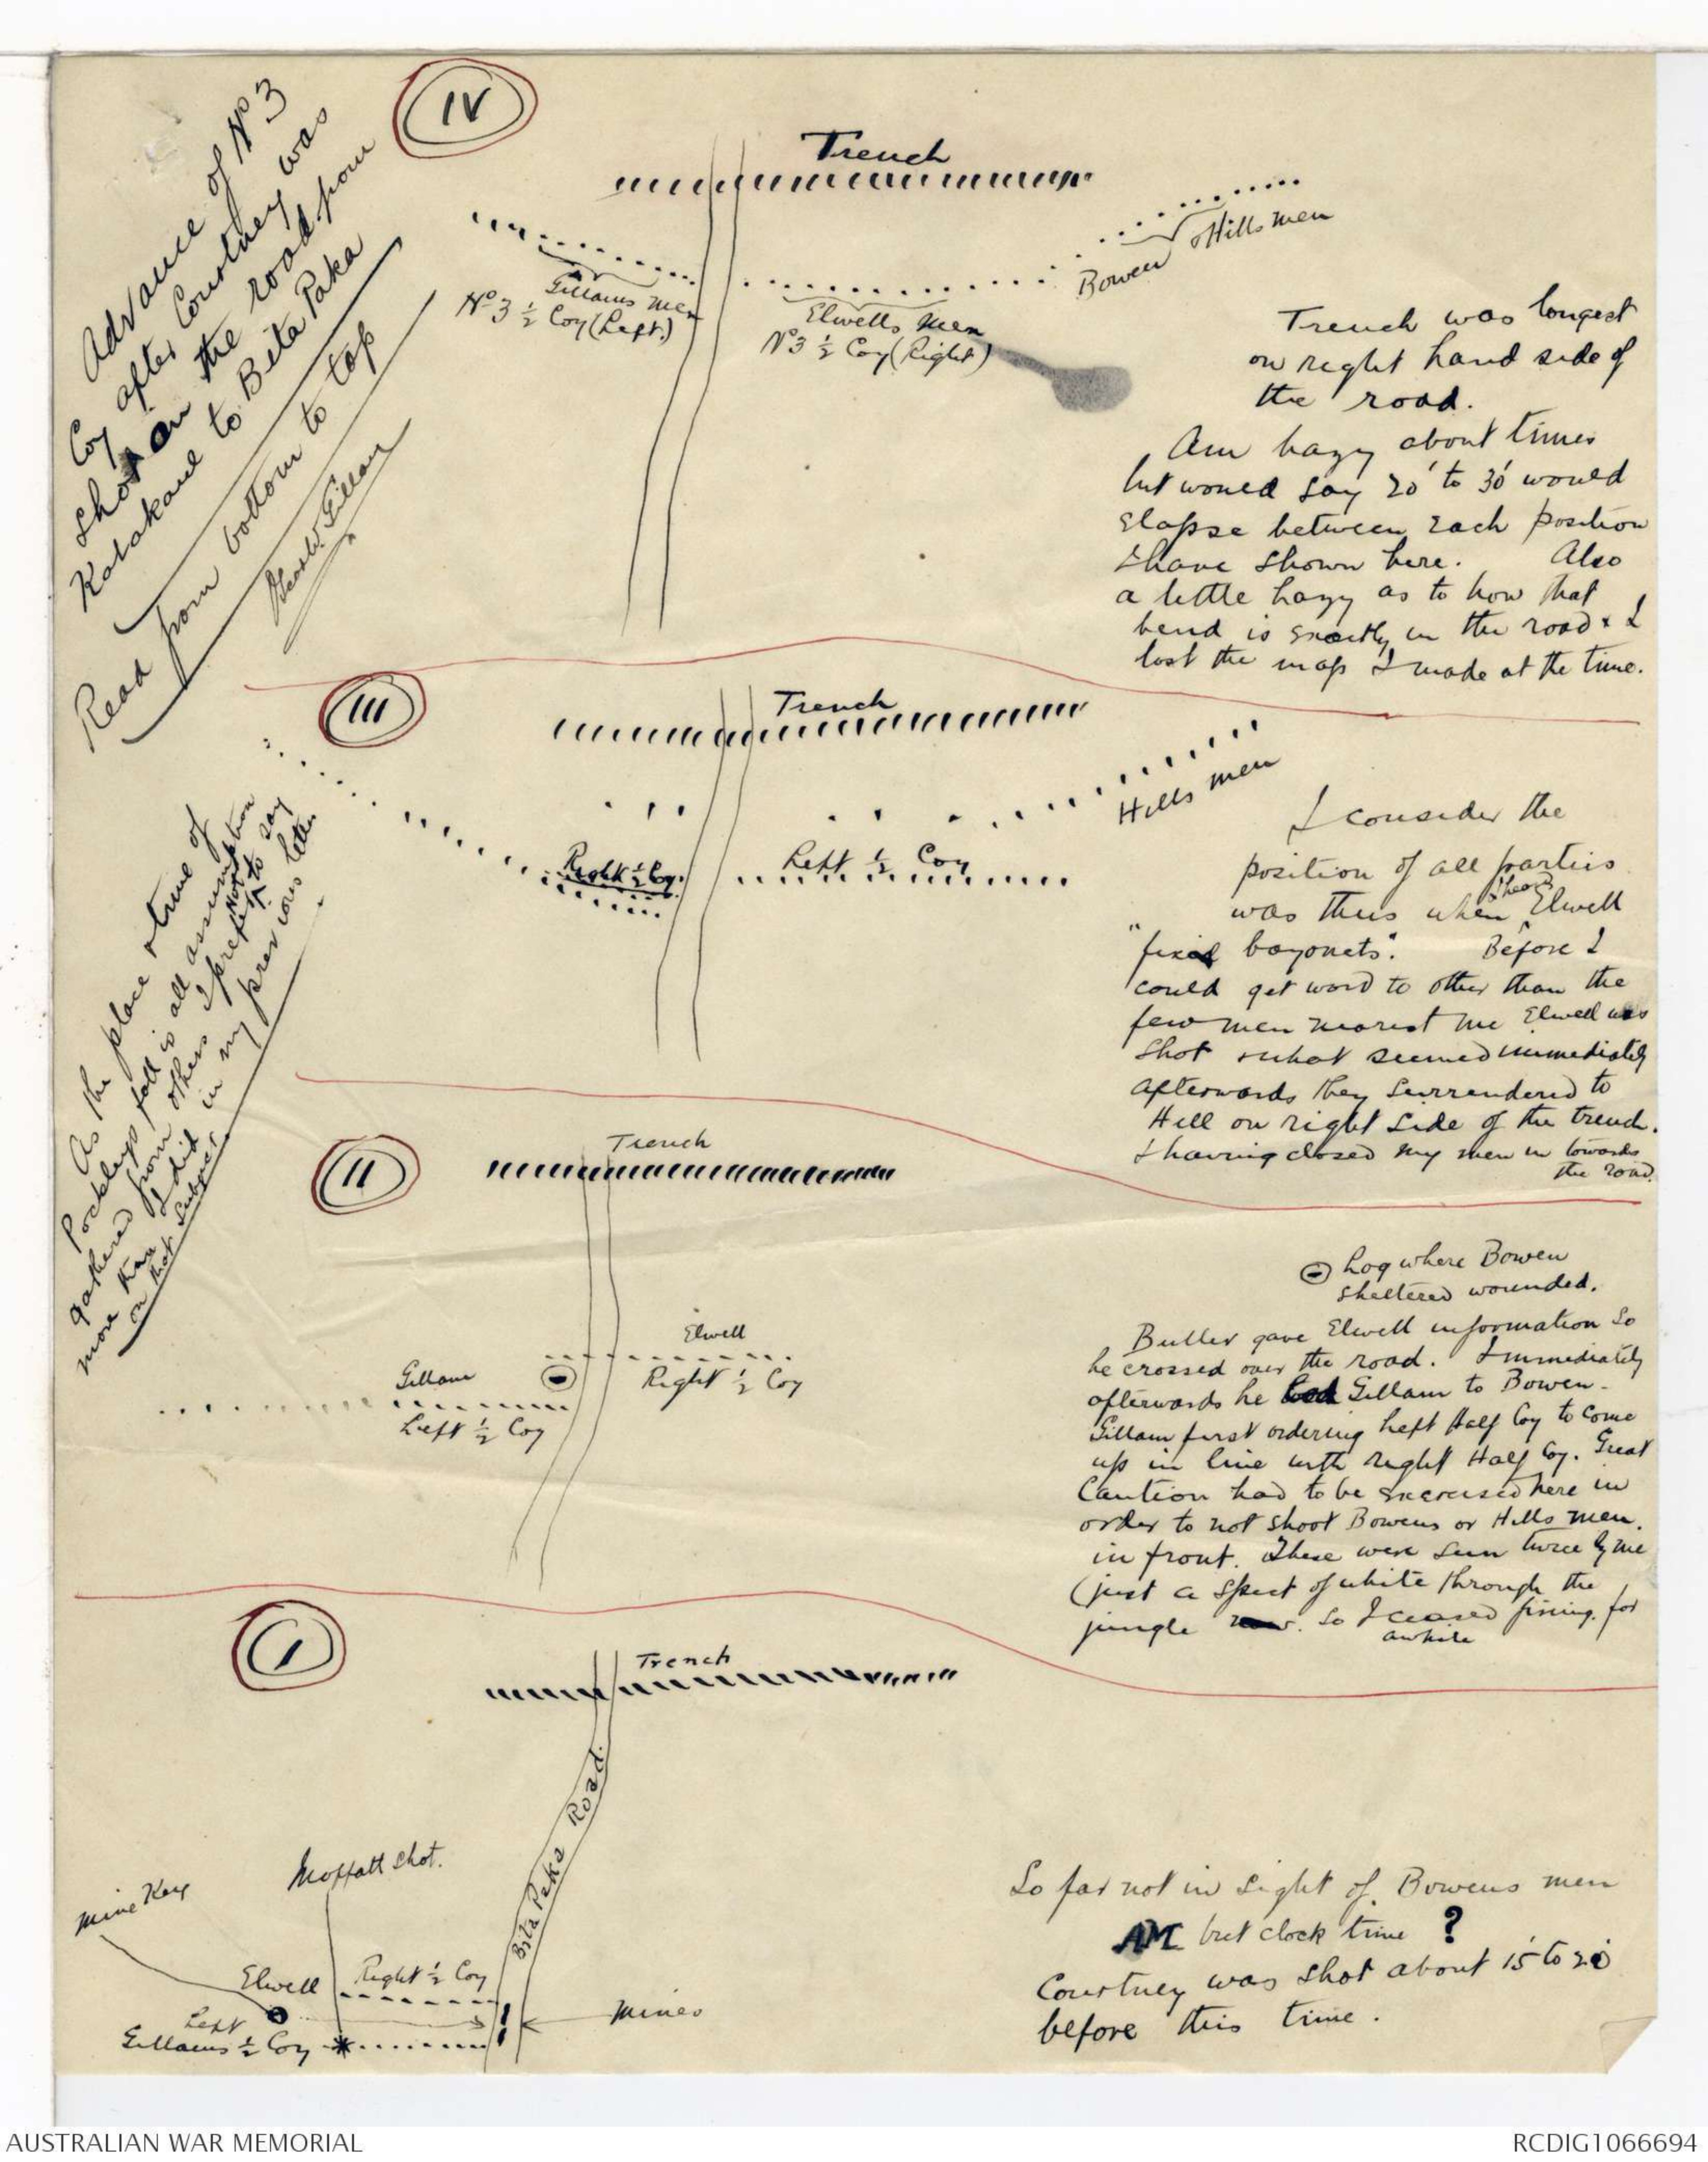 IV
Advance of No 3
Coy after Courtney was
shot on the road from
Kabakaul to Bita Paka
Read from bottom to top
Trench
Gillams men
No 3 ½ Coy (Left.)
Elwells men
No 3 ½ Coy (Right)
Bowen
Hills men
Trench was longest
on right hand side of
the road.
Am hazy about times
but would say 20' to 30' would
elapse between each position
I have shown here. Also
a little hazy as to how that
bend is exactly in the road & I
lost the map I made at the time.
III
Trench
Hills men
Right ½ Coy.
Left ½ Coy
As the place & time of
Pockleys fall is all assumption
gathered from others I prefer not to say
more than I did in my previous letter
on that subject
I consider the
position of all parties
was thus when I heard Elwell
"fixed bayonets". Before I
could get word to other than the
few men nearest me Elwell was
shot & what seemed immediately
afterwards they surrendered to
Hill on right side of the trench.
I having closed my men in towards
the road.
II
Trench
Elwell
Right ½ Coy
Gillam
Left ½ Coy
Log where Bowen
sheltered wounded.
Buller gave Elwell information so
he crossed over the road. Immediately
afterwards he led Gillam to Bowen -
Gillam first ordering Left Half Coy to come
up in line with right Half Coy. Great
Caution had to be exercised here in
order to not shoot Bowens or Hills men.
in front. These were seen twice by me
(just a speck of white through the
jungle. So I ceased firing for
awhile
I
Trench
Bita Paka Road.
Moffatt shot.
Mine Key
Elwell
Right ½ Coy
Left
Gillams ½ Coy
Mines
So far not in sight of Bowens men
AM but clock time ?
Courtney was shot about 15' to 20'
before this time.
AUSTRALIAN WAR MEMORIAL
RCDIG1066694